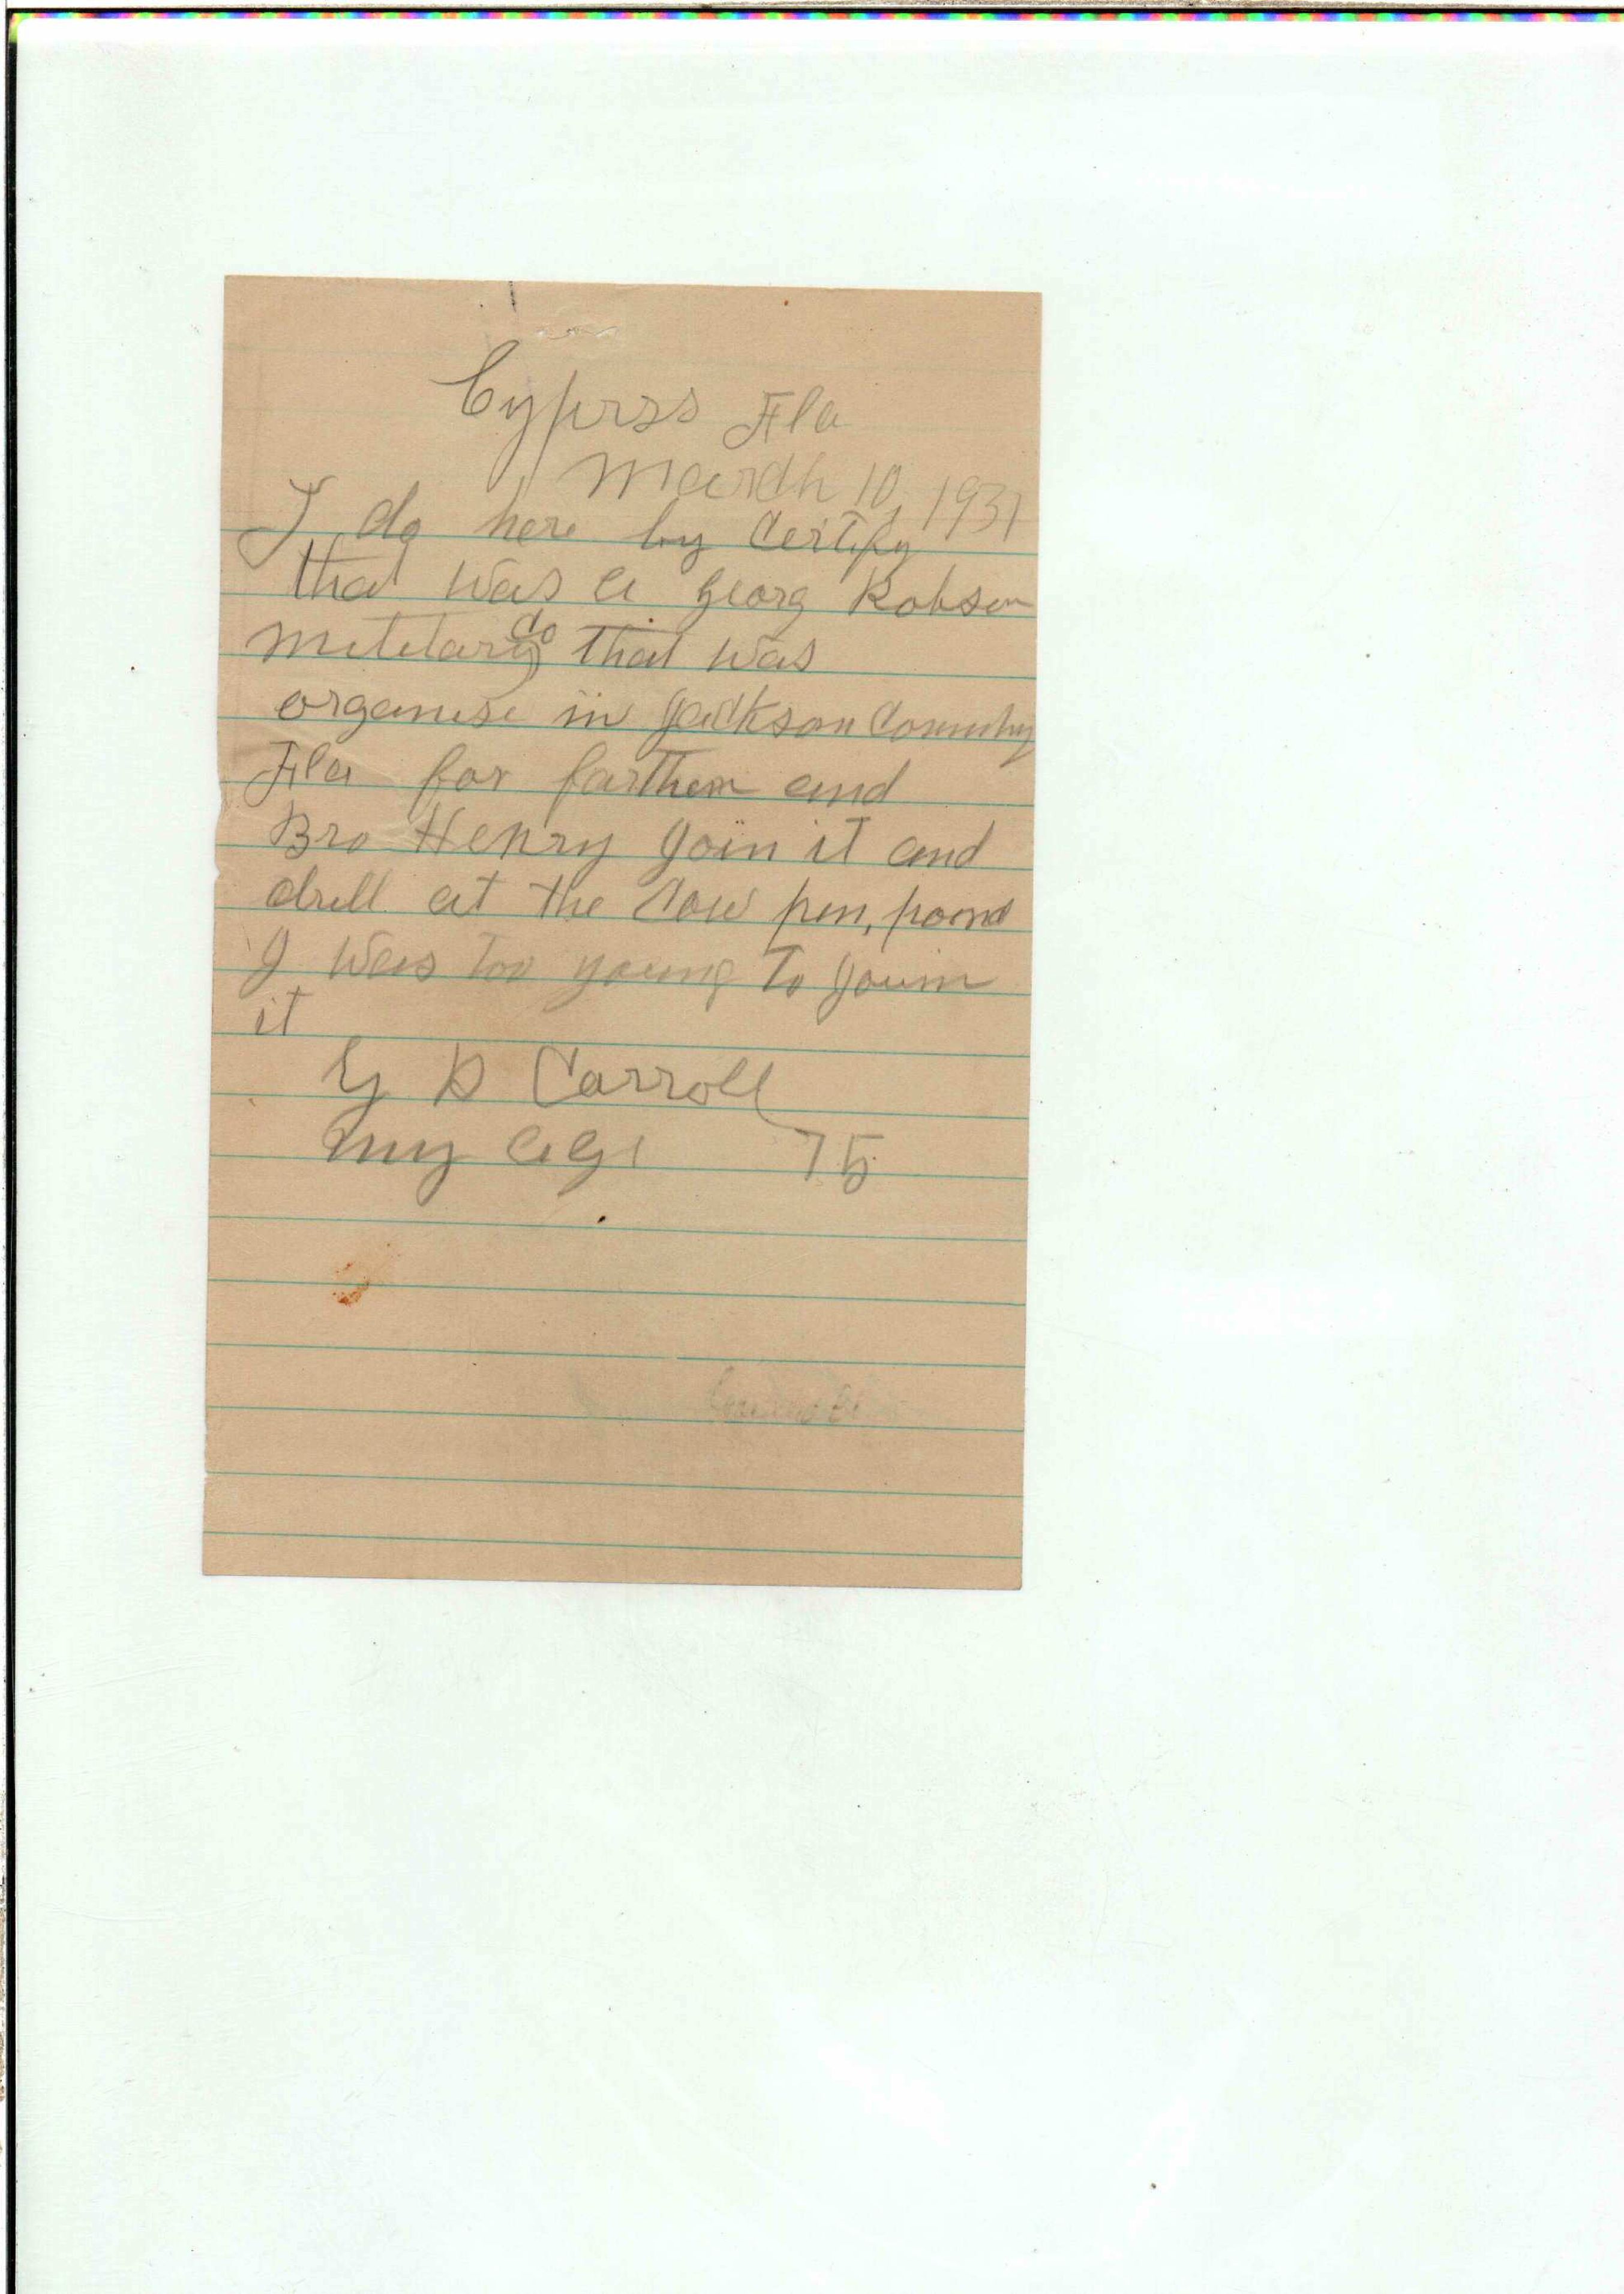 Cyprss Fla
March 10, 1931
I do here by Certify
that was a Georg Robson
Co
Metetary that was
organise in Jackson County
Fla for farther and
Bro Henry Join it and
drill at the Cow pen, pond
I was Too young To Join
it
D Carroll
my age 75